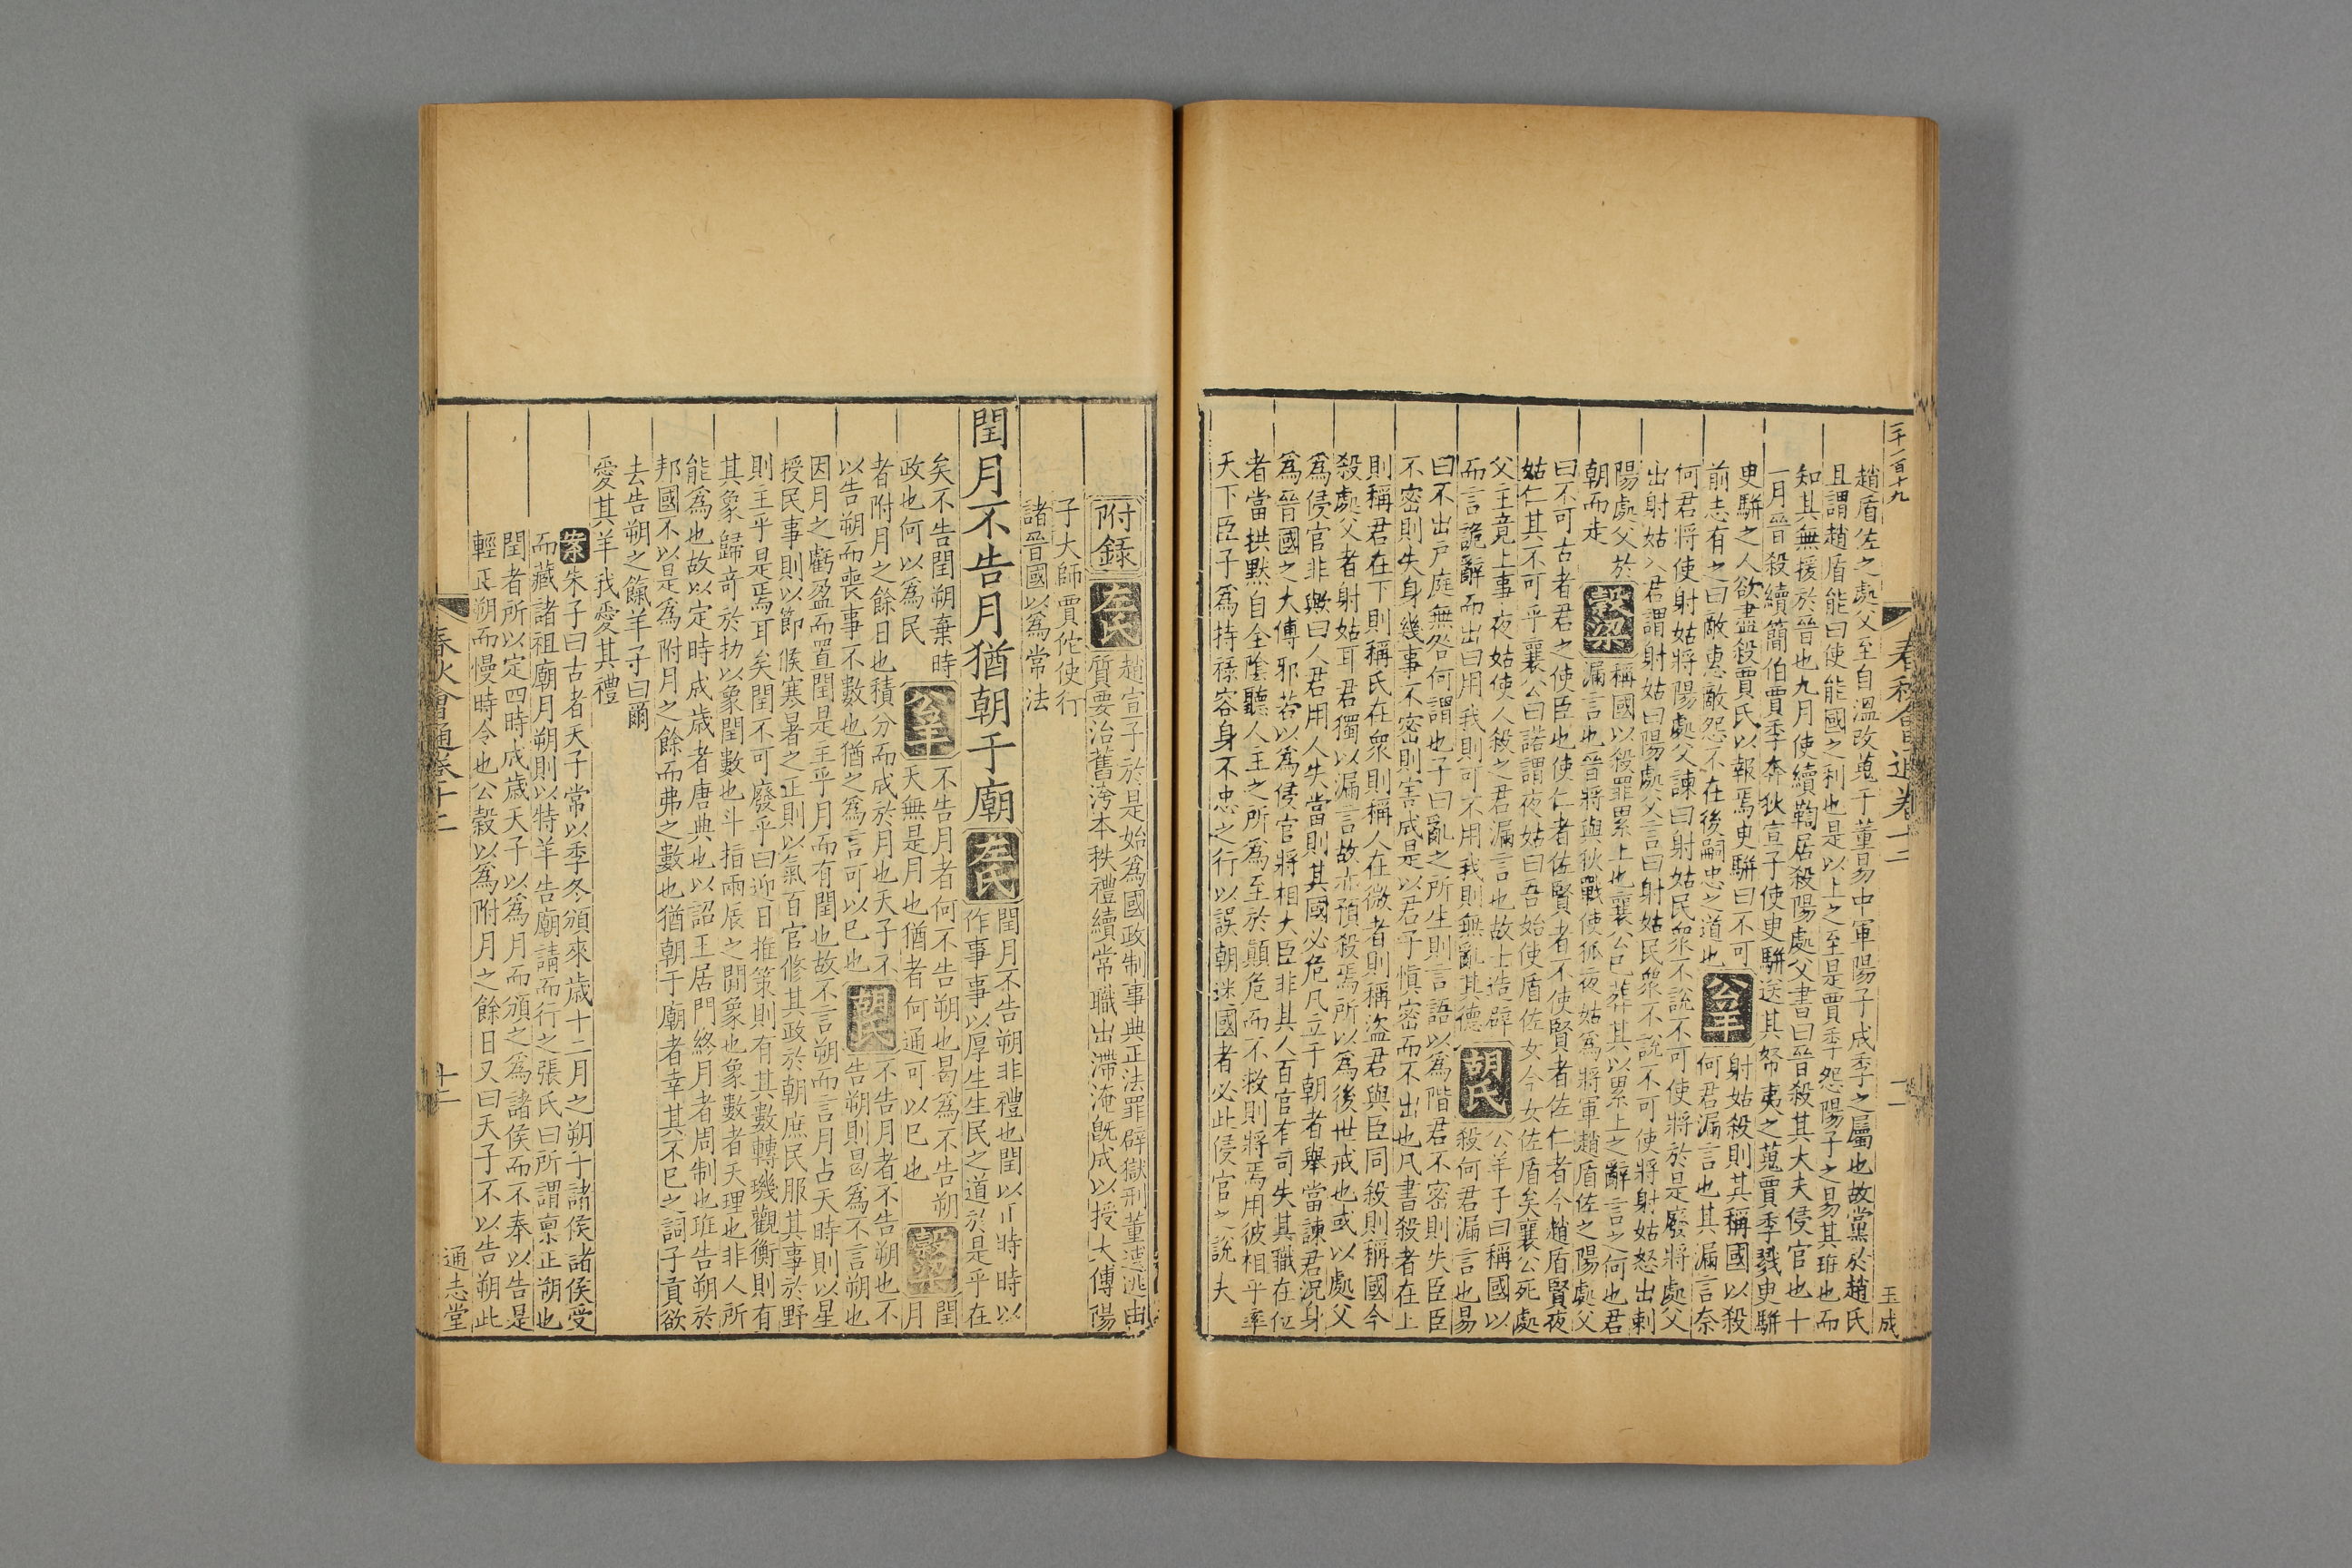 春秋會通卷十二
玉成
趙盾佐之處父至自溫改蒐于董易中軍陽子成季之屬也故黨於趙氏
且謂趙盾能曰使能國之利也是以上之至是賈季怨陽子之易其班也而
知其無援於晉也九月使續鞫居殺陽處父書曰晉殺其大夫侵官也十
一月晉殺續簡伯賈季奔狄宣子使臾駢送其帑夷之蒐賈季戮臾駢
臾駢之人欲盡殺賈氏以報焉臾駢曰不可
前志有之曰敵惠敵怨不在後嗣忠之道也
公羊
射姑殺則其稱國以殺
何君漏言也其漏言奈
何君將使射姑將陽處父諫曰射姑民衆不說不可使將於是廢將處父
出射姑入君謂射姑曰陽處父言曰射姑民衆不說不可使將射姑怒出刺
陽處父於
朝而走
穀梁
稱國以殺罪累上也襄公已葬其以累上之辭言之何也君
漏言也晉將與狄戰使狐夜姑爲將軍趙盾佐之陽處父
曰不可古者君之使臣也使仁者佐賢者不使賢者佐仁者今趙盾賢夜
姑仁其不可乎襄公曰諾謂夜姑曰吾始使盾佐女今女佐盾矣襄公死處
父主竟上事夜姑使人殺之君漏言也故士造辟
而言詭辭而出曰用我則可不用我則無亂其德
胡氏
公羊子曰稱國以
殺何君漏言也易
曰不出戸庭無咎何謂也子曰亂之所生則言語以爲階君不密則失臣臣
不密則失身幾事不密則害成是以君子愼密而不出也凡書殺者在上
則稱君在下則稱氏在衆則稱人在微者則稱盜君與臣同殺則稱國今
殺處父者射姑耳君獨以漏言故亦預殺焉所以爲後世戒也或以處父
爲侵官非歟曰人君用人失當則其國必危凡立于朝者舉當諫君況身
爲晉國之大傅邪若以爲侵官將相大臣非其人百官有司失其職在位
者當拱默自全陰聽人主之所爲至於顛危而不救則將焉用彼相乎率
天下臣子爲持祿容身不忠之行以誤朝迷國者必此侵官之說夫
附錄
左氏
趙宣子於是始爲國政制事典正法罪辟獄刑董逋逃由
質要治舊洿本秩禮續常職出滯淹旣成以授大傅陽
子大師賈佗使行
諸晉國以爲常法
閏月不告月猶朝于廟
左氏
閏月不告朔非禮也閏以正時時以
作事事以厚生生民之道於是乎在
矣不告閏朔棄時
政也何以爲民
公羊
不告月者何不告朔也曷爲不告朔
天無是月也猶者何通可以已也
穀梁
閏
月
者附月之餘日也積分而成於月也天子不
以告朔而喪事不數也猶之爲言可以已也
胡氏
不告月者不告朔也不
告朔則曷爲不言朔也
因月之虧盈而置閏是主乎月而有閏也故不言朔而言月占天時則以星
授民事則以節候寒暑之正則以氣百官修其政於朝庶民服其事於野
則主乎是焉耳矣閏不可廢乎曰迎日推策則有其數轉璣觀衡則有
其象歸奇於扐以象閏數也斗指兩辰之間象也象數者天理也非人所
能爲也故以定時成歲者唐典也以詔王居門終月者周制也班告朔於
邦國不以是爲附月之餘而弗之數也猶朝于廟者幸其不已之詞子貢欲
去告朔之餼羊子曰爾
愛其羊我愛其禮
案
朱子曰古者天子常以季冬頒來歲十二月之朔于諸侯諸侯受
而藏諸祖廟月朔則以特羊告廟請而行之張氏曰所謂稟正朔也
閏者所以定四時成歲天子以爲月而頒之爲諸侯而不奉以告是
輕正朔而慢時令也公穀以爲附月之餘日又曰天子不以告朔此
春秋會通卷十二
十二
通志堂